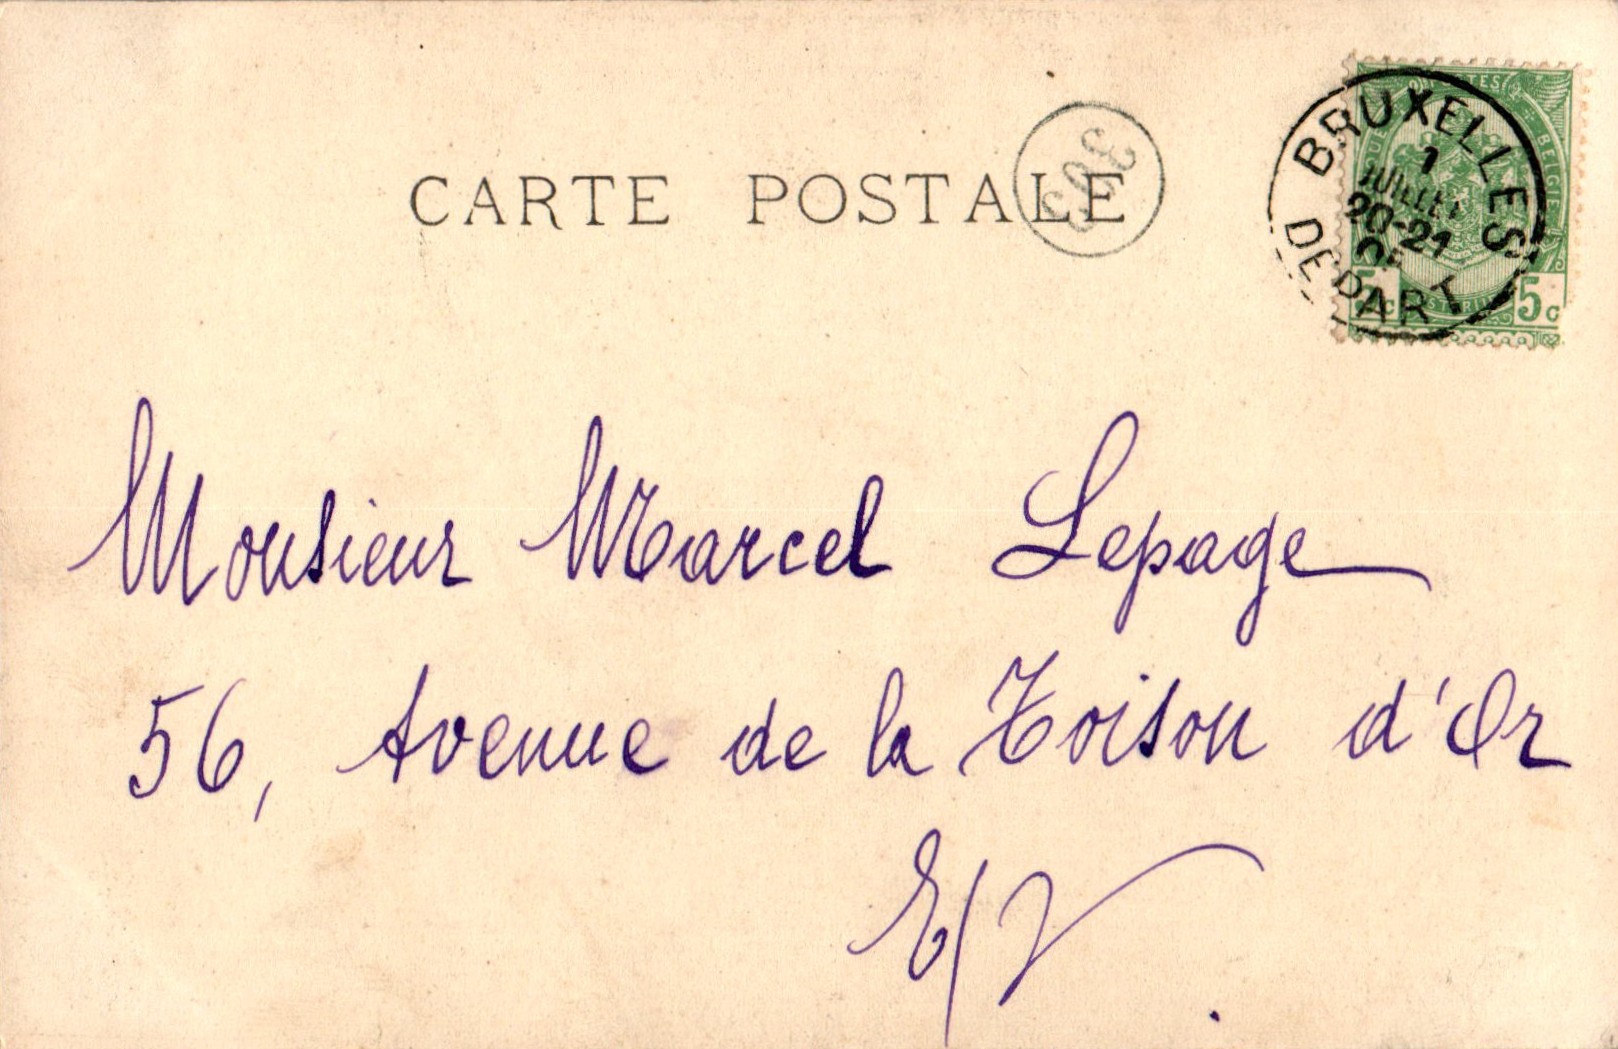 CARTE POSTALE
BRUXELLES
1
JUILLET
20-21
DEPART
BELGIQUE
5c 5c
Monsieur Marcel Lepage
56, Avenue de la Toison d'Or
E/V.